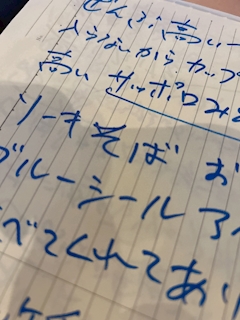 ぜんぶ高い
入らないから カップ
高い サッポロみ
ソーキそば お
ブルーシール ア
べてくれてあり